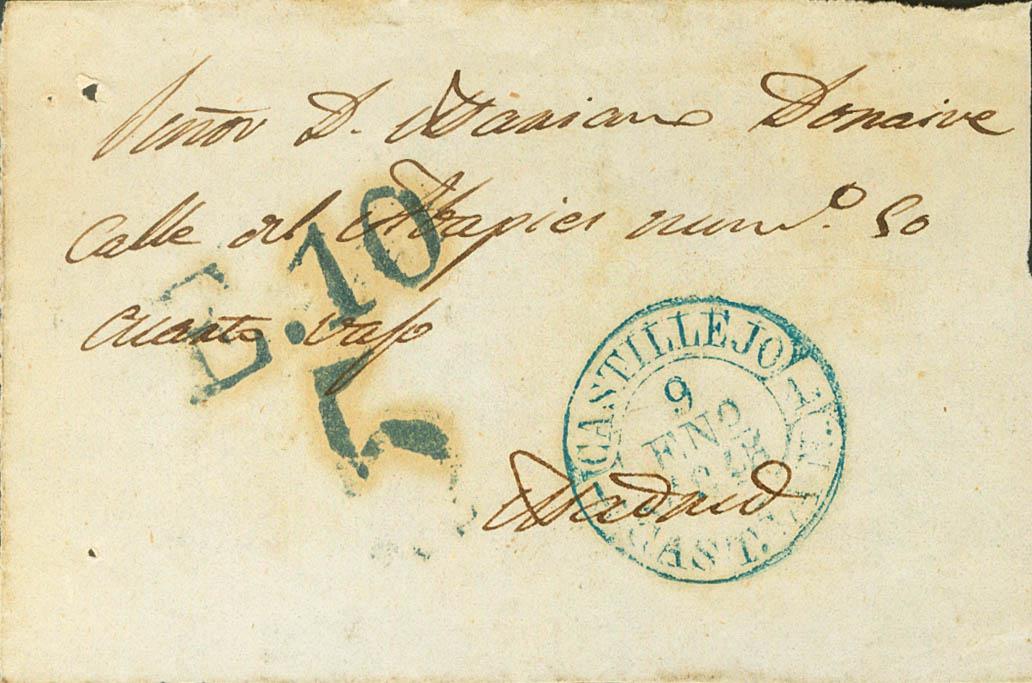 Señor D. Mariano Donaire
Calle del Abapies num.º 50
cuarto vajo
E.10
CASTILLEJO
9
ENO
CAST.
Madrid